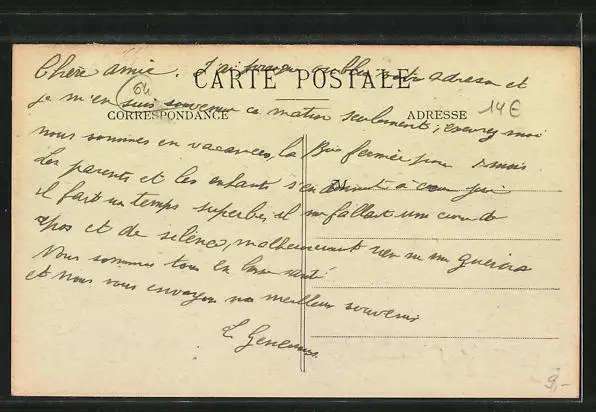 Chère amie. J'ai presque oublié votre adresse et
CARTE POSTALE
64
je m'en suis souvenue ce matin seulement, excusez moi
CORRESPONDANCE
ADRESSE
14€
nous sommes en vacances, la Bne fermée pour mois
Les parents et les enfants s'en à cœur joie
M
Il fait un temps superbe, il me fallait une cure de
repos et de silence, malheureusement rien ne me guérira
Nous sommes tous en bonne santé
et nous vous envoyons nos meilleurs souvenirs
L.
9,-